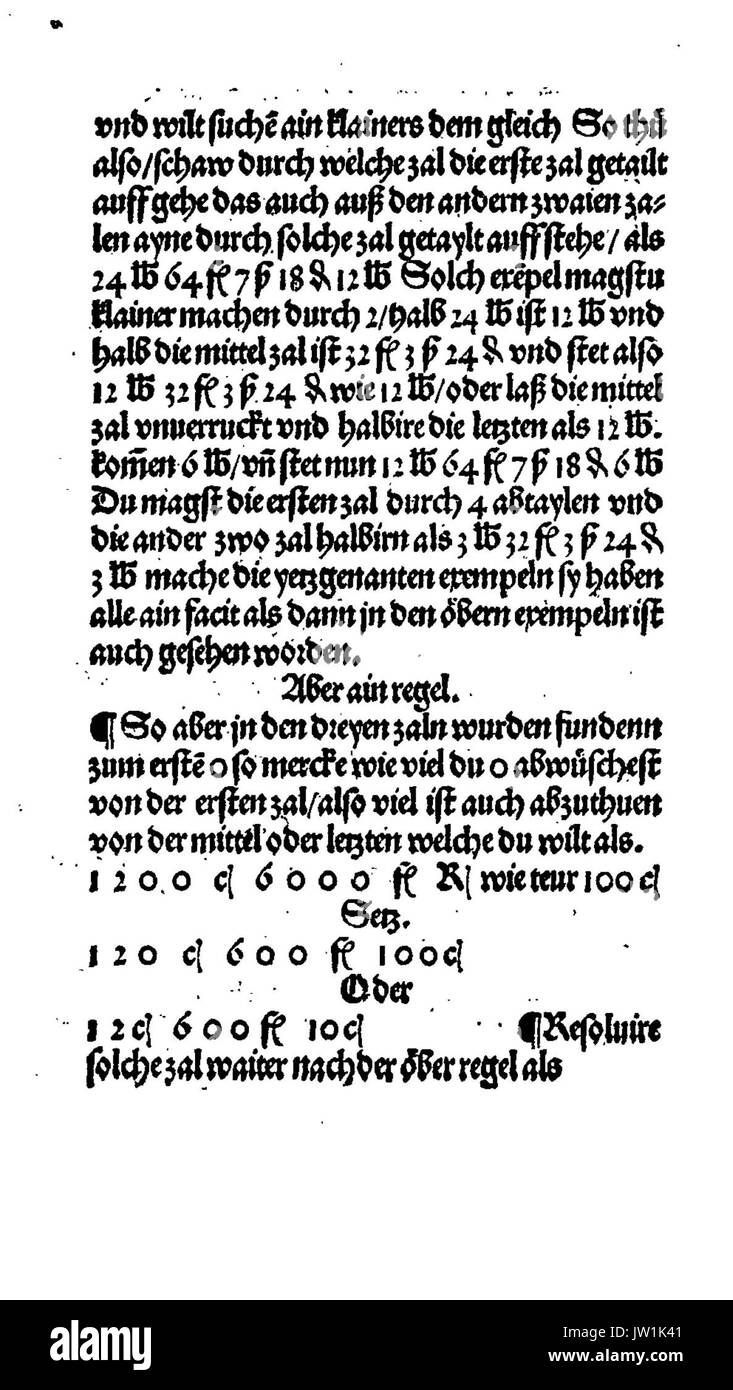 vnd wilt suchē ain klainers dem gleich So thū
also/schaw durch welche zal die erste zal getailt
auff gehe das auch auß den andern zwaien za⸗
len ayne durch solche zal getaylt auff stehe/ als
24 ℔ 64 fl 7 ß 18 ₰ 12 ℔ Solch exēpel magstu
klainer machen durch 2/halb 24 ℔ ist 12 ℔ vnd
halb die mittel zal ist 32 fl 3 ß 24 ₰ vnd stet also
12 ℔ 32 fl 3 ß 24 ₰ wie 12 ℔/oder laß die mittel
zal vnuerruckt vnd halbire die letzten als 12 ℔.
kom̄en 6 ℔/vn̄ stet nun 12 ℔ 64 fl 7 ß 18 ₰ 6 ℔
Du magst die ersten zal durch 4 abtaylen vnd
die ander zwo zal halbirn als 3 ℔ 32 fl 3 ß 24 ₰
3 ℔ mache die yetzgenanten exempeln sy haben
alle ain facit als dann jn den öbern exempeln ist
auch gesehen worden.
Aber ain regel.
¶ So aber jn den dreyen zaln wurden fundenn
zum erstē 0 so mercke wie viel du 0 abwüschest
von der ersten zal/also viel ist auch abzuthuen
von der mittel oder letzten welche du wilt als.
1 2 0 0 c| 6 0 0 0 fl R| wie teur 100 c|
Setz.
1 2 0 c| 6 0 0 fl 100 c|
Oder
1 2 c| 6 0 0 fl 10 c| ¶ Resoluire
solche zal waiter nach der öber regel als
alamy stock photo
JW1K41
www.alamy.com